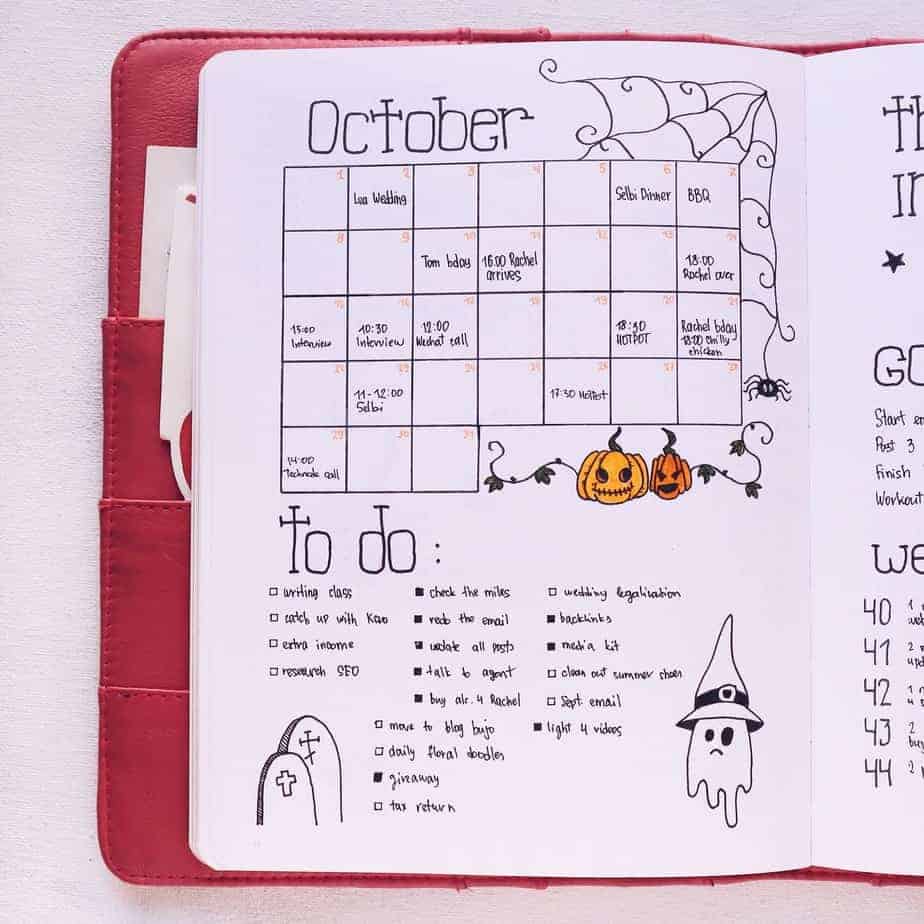 October
1 2 3 4 5 6 7
Wedding
Selbi Dinner
BBQ
8 9 10 11 12 13 14
Tom bday
16:00 Rachel
arrives
18:00
Rachel over
15 16 17 18 19 20 21
15:00
Interview
10:30
Interview
12:00
Wechat call
18:30
HOTPOT
Rachel bday
18:00 chilly
chicken
22 23 24 25 26 27 28
11-12:00
Selbi
17:30 Hotpot
29 30 31
14:00
call
to do:
writing class
catch up with
extra income
research SEO
check the miles
redo the email
update all posts
talk to agent
buy alc. 4 Rachel
wedding legalisation
backlinks
media kit
clean out summer shoes
Sept. email
light 4 videos
move to blog bujo
daily floral doodles
giveaway
tax return
th
in
GO
Start
Post 3
Finish
Workout
we
40
41
42
43
44